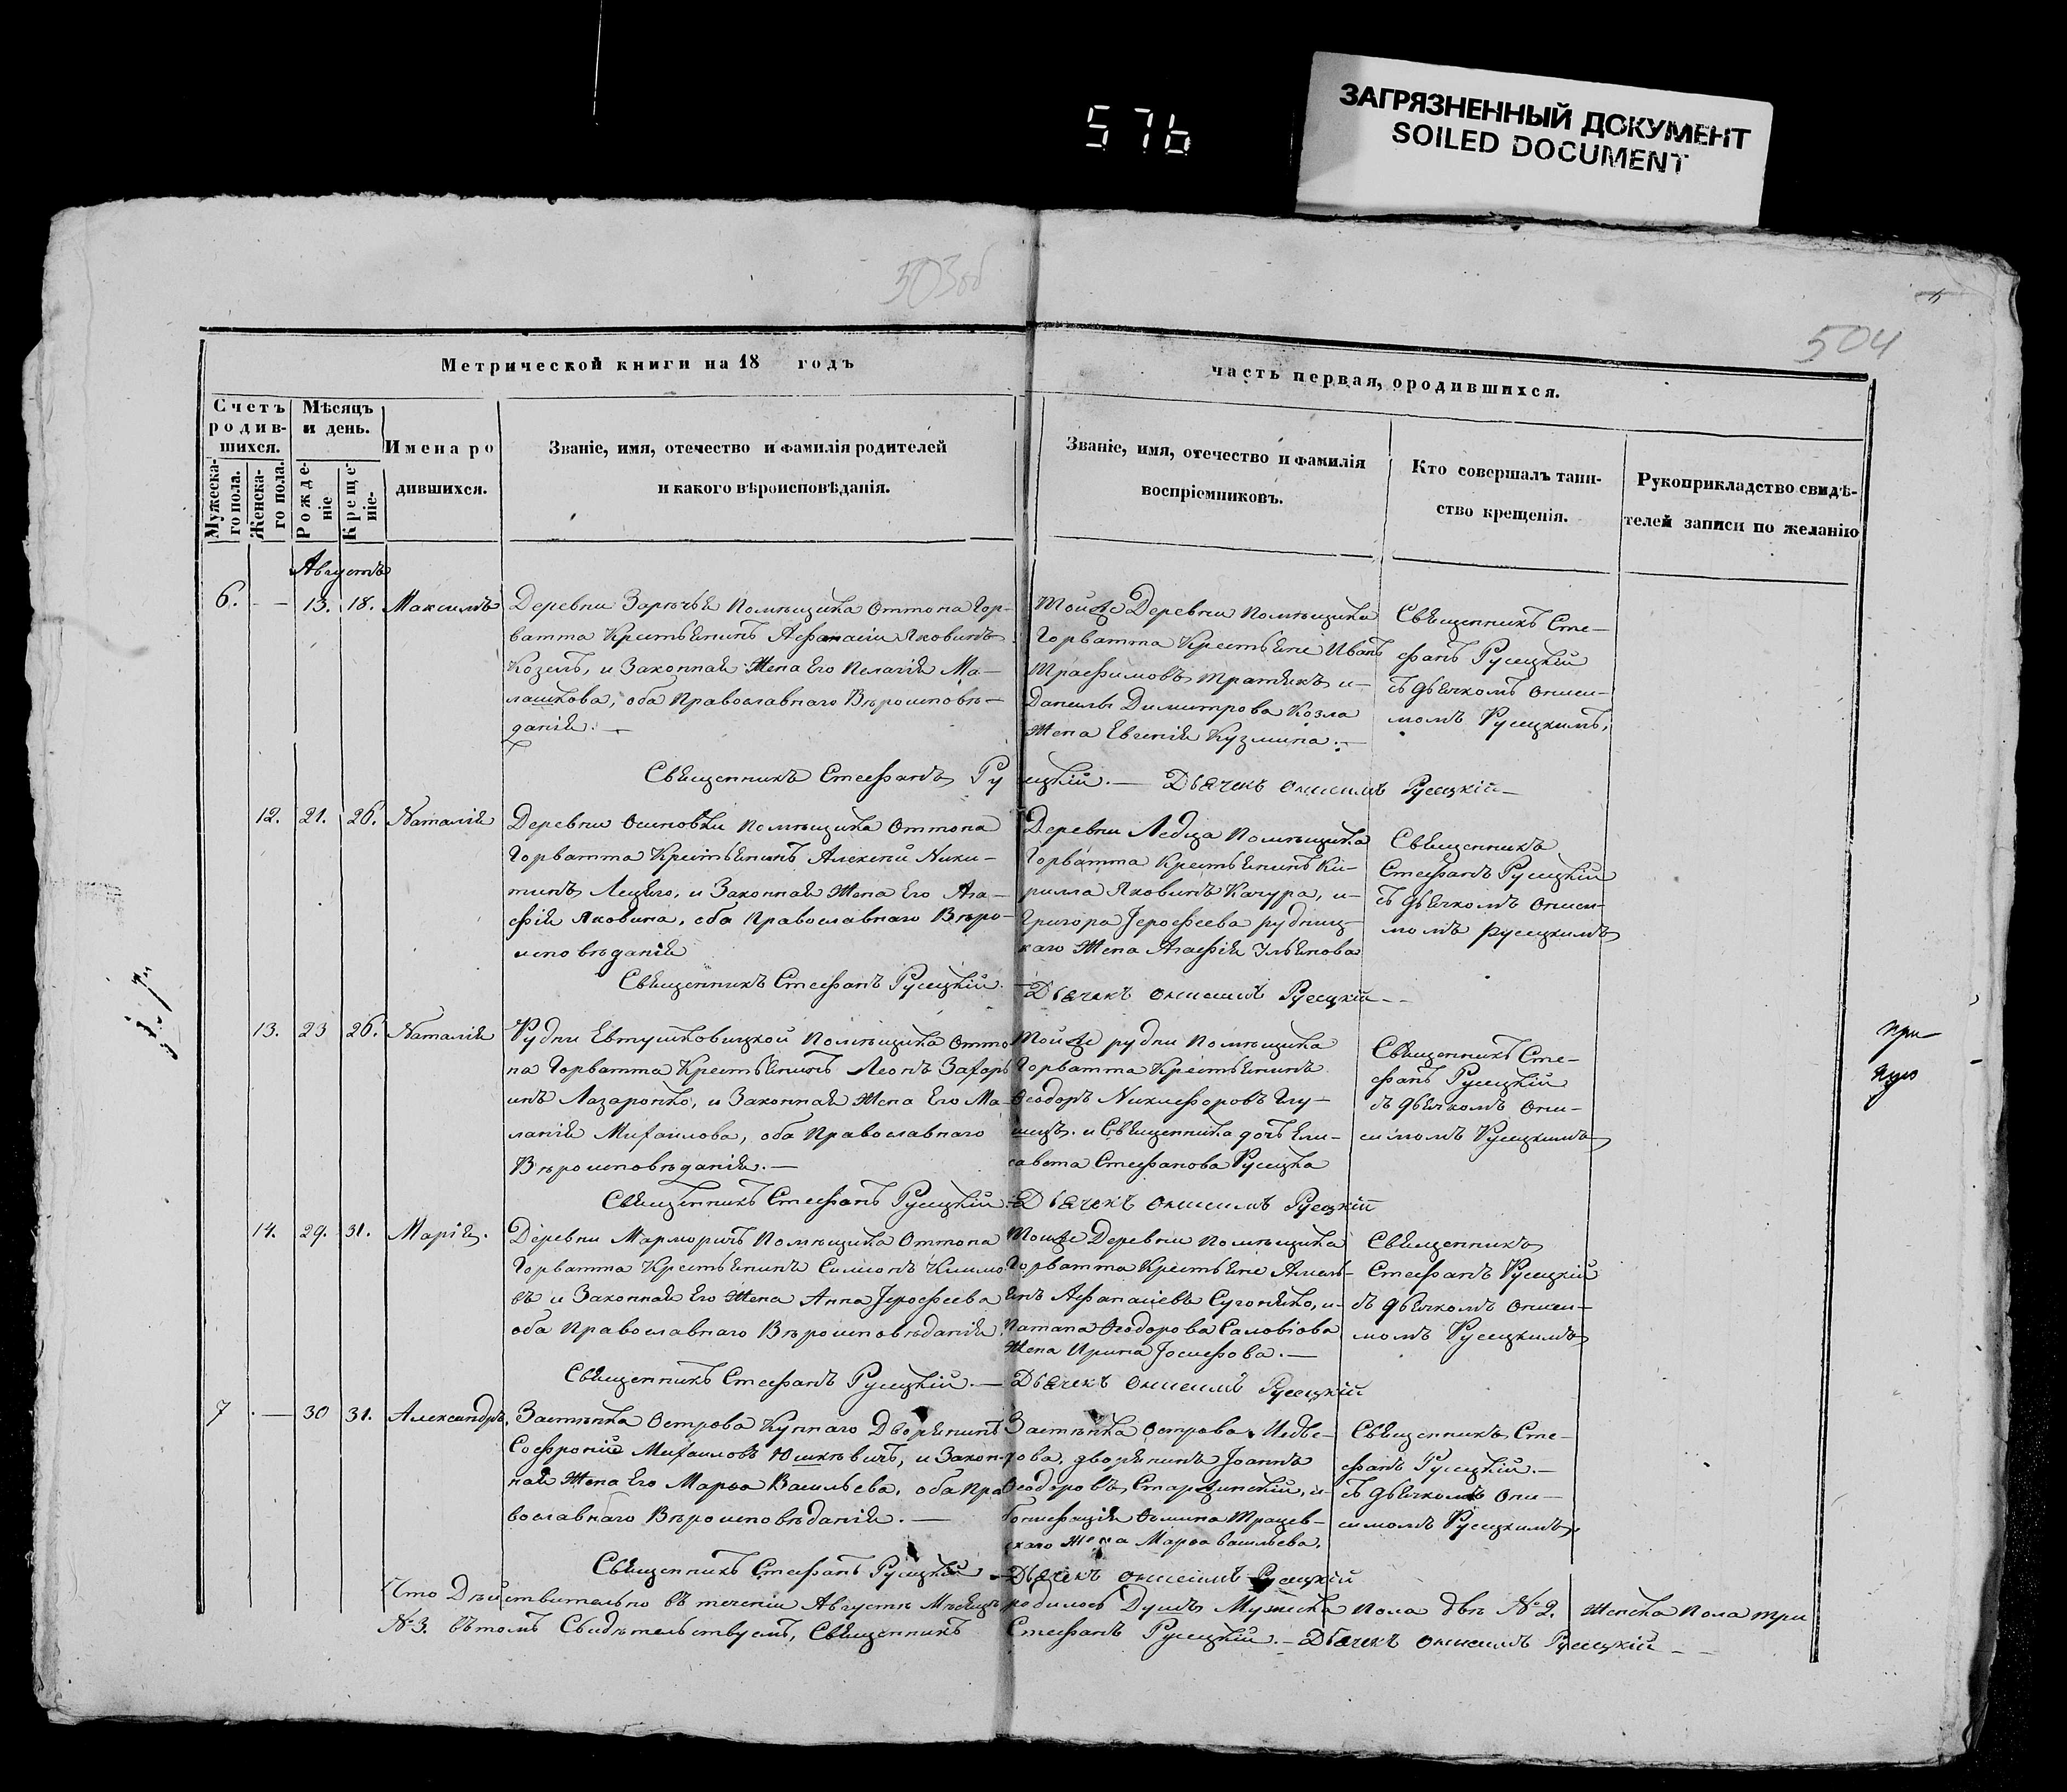 576
ЗАГРЯЗНЕННЫЙ ДОКУМЕНТ
SOILED DOCUMENT
503об
504
Метрической книги на 18 годъ
часть первая, о родившихся.
Счетъ родив-шихся.
Мужеска-го пола.
Женска-го пола.
Мѣсяцъ и день.
Рожде-ніе
Креще-ніе-
Имена ро
дившихся.
Званіе, имя, отечество и фамилія родителей
и какого вѣроисповѣданія.
Званіе, имя, отечество и фамилія
воспріемниковъ.
Кто совершалъ таин-
ство крещенія.
Рукоприкладство свидѣ-
телей записи по желанію
Августъ
6. — 13. 18. Максимъ
Деревни Зарѣчья Помѣщика Оттона Гор-
ватта Крестьянинъ Афанасій Яковинъ
Козелъ, и Законная Жена Его Пелагія Ма-
лашкова, оба Православнаго Вѣроисповѣ-
данія. —
Тойже Деревни Помѣщика
Горватта Крестьяне Иванъ
Трафимовъ и
Данилы Димитрова Козла
Жена Евгенія Кузмина. —
Священникъ Сте-
фанъ Русецкій
съ дьячкомъ Ониси-
момъ Русецкимъ,
Священникъ Стефанъ Русецкій. — Дьячекъ Онисимъ Русецкій —
12. 21. 26. Наталія
Деревни Осиповки Помѣщика Оттона
Горватта Крестьянинъ Алексѣй Ники-
тинъ и Законная Жена Его Ага-
фія Яковина, оба Православнаго Вѣро-
исповѣданія
Деревни Ледца Помѣщика
Горватта Крестьянинъ Ки-
рилла Яковинъ Качура, и-
Григора Іерофеева Рудниц-
каго Жена Агафія Ульянова
Священникъ
Стефанъ Русецкій
съ дьячкомъ Ониси-
момъ Русецкимъ
Священникъ Стефанъ Русецкій. — Дьячекъ Онисимъ Русецкій —
13. 23 26. Наталія
Рудни Евтушковицкой Помѣщика Отто
на Горватта Крестьянинъ Леонъ Захарь
инъ Лазаренко, и Законная Жена Его Ма-
ланія Михаилова, оба Православнаго
Вѣроисповѣданія. —
Тойже рудни Помѣщика
Горватта Крестьянинъ
Ѳеодоръ Никифоровъ Глу-
шецъ. и Священника дочь Ели-
савета Стефанова Русецка
Священникъ Сте-
фанъ Русецкій
съ дьячкомъ Они-
симомъ Русецкимъ
Священникъ Стефанъ Русецкій. — Дьячекъ Онисимъ Русецкій
при
14. 29. 31. Марія.
Деревни Мармовичъ Помѣщика Оттона
Горватта Крестьянинъ Симіонъ Климо
въ и Законная Его Жена Анна Іерофеева
оба Православнаго Вѣроисповѣданія.
Тойже Деревни Помѣщика
Горватта Крестьяне Амель-
янъ Афанасіевъ и-
Патапа Ѳеодорова Саловіова
Жена Ирина Іосифова. —
Священникъ
Стефанъ Русецкій
съ дьячкомъ Ониси-
момъ Русецкимъ
Священникъ Стефанъ Русецкій. — Дьячекъ Онисимъ Русецкій
7 — 30 31. Александръ.
Застѣнка Острова Купнаго Дворянинъ
Софроній Михаиловъ Юшкѣвичъ, и Закон-
ная Жена Его Марѳа Васильева, оба Пра
вославнаго Вѣроисповѣданія. —
Застѣнка Острова
дворянинъ Іоаннъ
Ѳеодоровъ и
Ѳомина
Жена Марѳа Васильева.
Священникъ Сте-
фанъ Русецкій. —
съ дьячкомъ Они-
симомъ Русецкимъ.
Священникъ Стефанъ Русецкій — Дьячекъ Онисимъ Русецкій
Что Дѣйствительно въ теченіи Августѣ Мѣсяцѣ родилось Душъ Мужеска пола двѣ №2. Женска пола три
№3. въ томъ Свидѣтельствуемъ, Священникъ Стефанъ Русецкій. — Дьячекъ Онисимъ Русецкій —